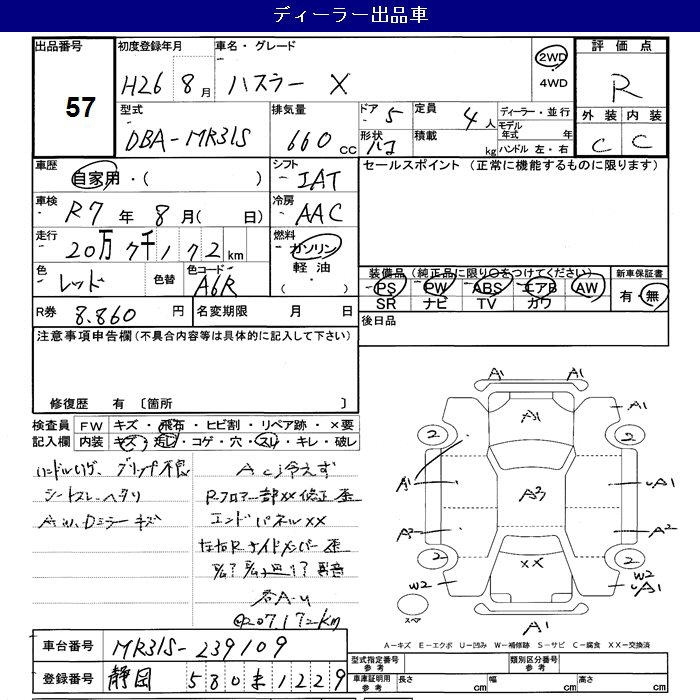 ディーラー出品車
出品番号 57
初度登録年月 H26 8月
車名・グレード ハスラー X
2WD
・
4WD
評価点 R
外装 内装
C C
型式 DBA-MR31S
排気量 660 cc
ドア 5
定員 4人
形状 ハコ
積載 kg
ディーラー・並行
モデル年式 年
ハンドル 左・右
車歴 自家用・( )
シフト IAT
セールスポイント (正常に機能するものに限ります)
車検 R7年 8月( 日)
冷房 AAC
走行 20万7千172 km
燃料 ガソリン
軽油
( ・ )
色 レッド
色替
色コード A6R
装備品 (純正品に限り○をつけてください)
PS PW ABS エアB AW
SR ナビ TV カワ
新車保証書
有・無
R券 8.860 円
名変期限 月 日
後日品
注意事項申告欄(不具合内容等は具体的に記入して下さい)
修復歴 有 〔箇所 〕
検査員記入欄
FW キズ・飛石・ヒビ割・リペア跡・×要
内装 キズ・汚レ・コゲ・穴・スレ・キレ・破レ
シートスレ、ヘタリ
ACJ冷えず
Rフロアー部××修正 歪
エンドパネル××
左右Rサイドメンバー 歪
207.172km
A1 A1
A1 A1
2 2
A1 A3 A1
A2 A2
2 2
W2 ×× W2
A1
スペア A1
A-キズ E-エクボ U-凹み W-補修跡 S-サビ C-腐食 XX-交換済
車台番号 MR31S-239109
登録番号 静岡 580 ま 1229
型式指定番号 参考
類別区分番号 参考
車庫証明用 参考
長さ cm 幅 cm 高さ cm